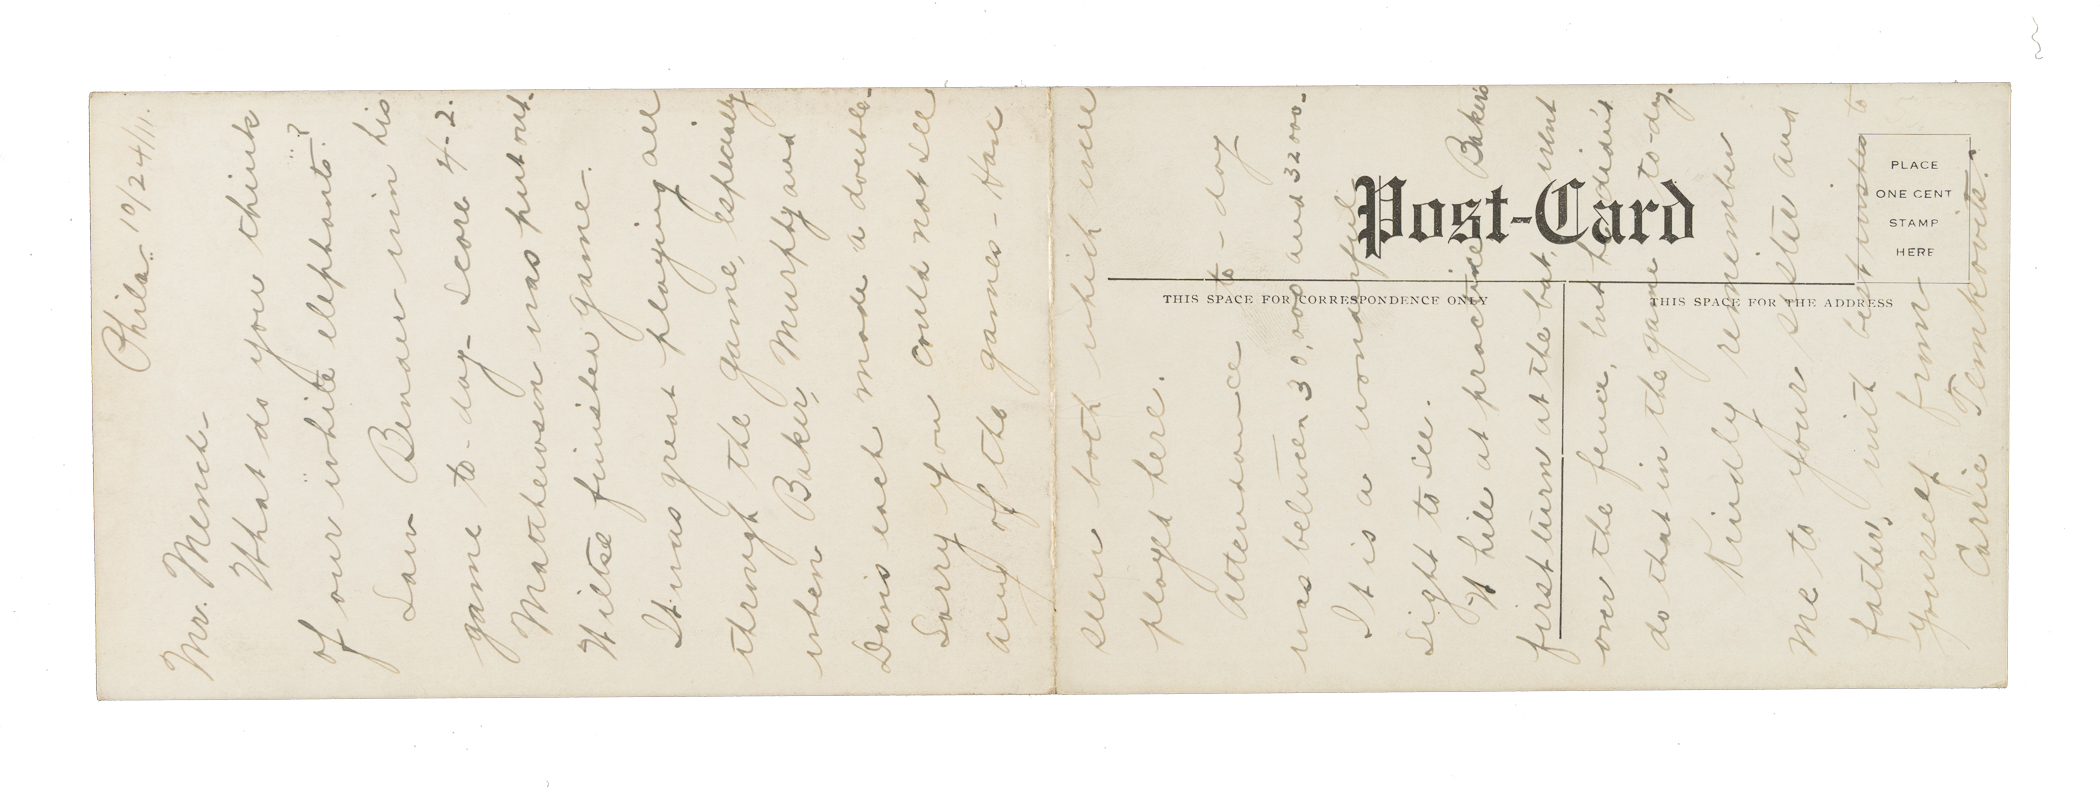 Phila. 10/24/11.
Mr. Mench-
What do you think
of our "white elephants"?
Saw Bender win his
game to-day- Score 4-2.
Matthewson was put out.
Wiltse finished game.
It was great playing all
through the game, especially
when Baker, Murphy and
Davis each made a double-
Sorry you could not see
any of the games - Have
seen both which were
played here.
Attendance to-day
was between 30,000 and 32000-
It is a wonderful
sight to see.
While at practice Baker's
first turn at the bat, went
over the fence, but he didn't
do that in the game to-day.
Kindly remember
me to your sister and
father, with best wishes to
yourself from
Carrie
Post-Card
THIS SPACE FOR CORRESPONDENCE ONLY
THIS SPACE FOR THE ADDRESS
PLACE
ONE CENT
STAMP
HERE